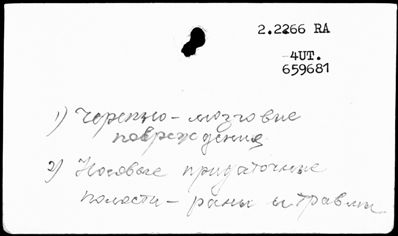 2.2266 RA
4UT.
659681
1) Черепно-мозговые
повреждения
2) Носовые придаточные
полости - раны и травмы